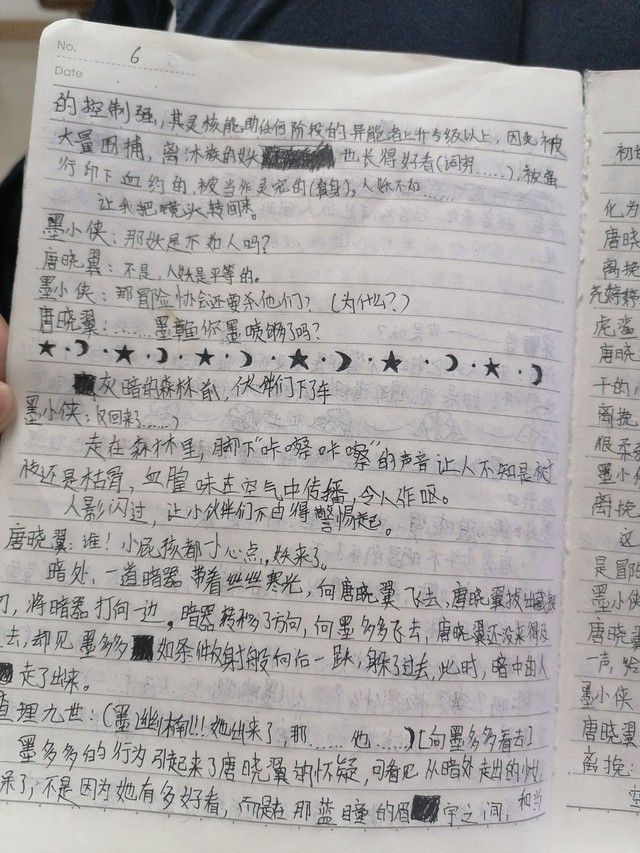 No. 6
Date
的控制强,其灵核能助任何阶段的异能者上升5级以上,因此被
大量围捕,离沐族的妖 也长得好看(词穷……),被强
行印下血约的,被当作灵宠的(替身),人妖不如……
让我把镜头转回来。
墨小侠:那妖是不如人吗?
唐晓翼:不是,人妖是平等的。
墨小侠:那冒险协会还要杀他们?(为什么?)
唐晓翼:……墨鱼你墨喷够了吗?
灰暗的森林前,伙伴们下了车
墨小侠:(又回来了……)
走在森林里,脚下“咔嚓咔嚓”的声音让人不知是树
枝还是枯骨,血腥味在空气中传播,令人作呕。
人影闪过,让小伙伴们不由得警惕起。
唐晓翼:谁!小屁孩都小心点,妖来了。
暗处,一道暗器带着丝丝寒光,向唐晓翼飞去,唐晓翼拔出
刀,将暗器打向一边,暗器转移了方向,向墨多多飞去,唐晓翼还没来得及
去,却见墨多多 如条件放射般向后一跃,躲了过去,此时,暗中的人
走了出来。
真理九世:(墨幽楠!!!她出来了,那……他……)[向墨多多看去]
墨多多的行为引起来了唐晓翼的怀疑,可看见从暗处走出的
呆了,不是因为她有多好看,而是在那蓝瞳的眉 宇之间,和当
初
化为
唐晓
离挽
尧婷婷
虎鲨
唐晓
干的
离挽
很
墨小
离挽
这
是冒险
墨小侠
唐晓翼
一声,
墨小侠
唐晓翼
离挽: